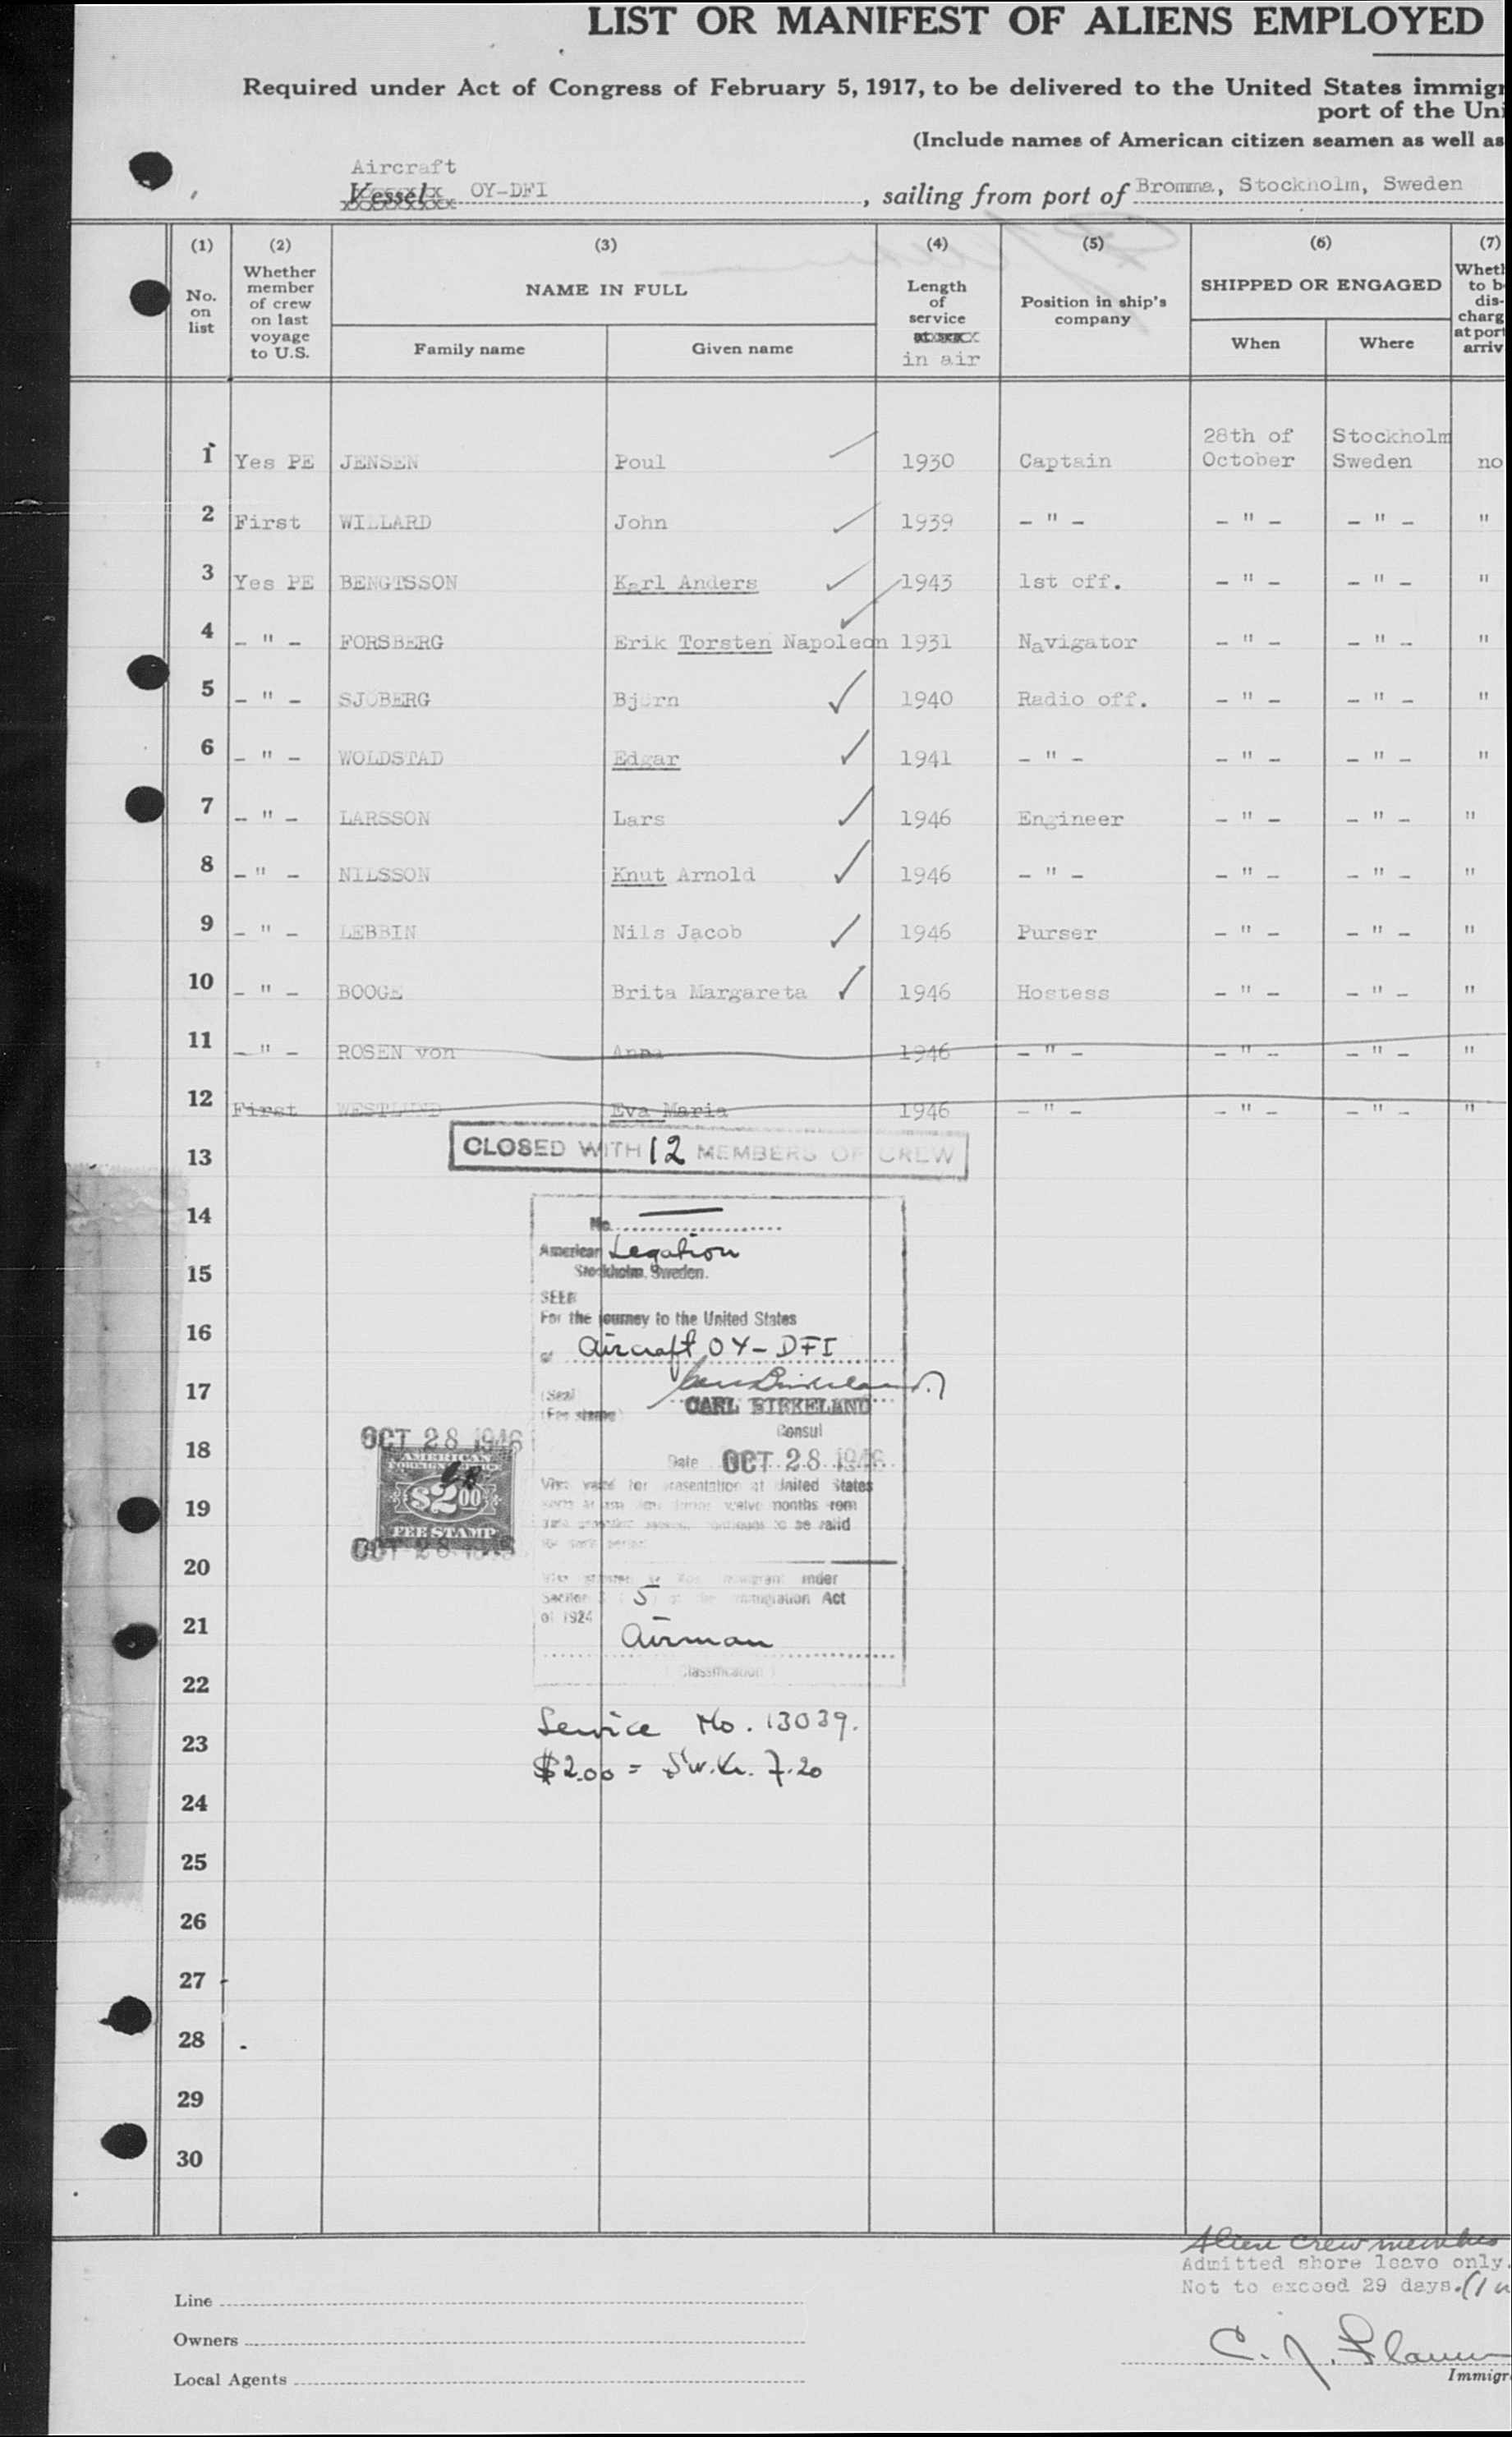 LIST OR MANIFEST OF ALIENS EMPLOYED
Required under Act of Congress of February 5, 1917, to be delivered to the United States immigr
port of the Uni
(Include names of American citizen seamen as well as
Aircraft
Vessel OY-DFI, sailing from port of Bromma, Stockholm, Sweden
(1) (2) (3) (4) (5) (6) (7)
No. on list
Whether member of crew on last voyage to U.S.
NAME IN FULL
Family name Given name
Length of service at sea in air
Position in ship's company
SHIPPED OR ENGAGED
When Where
Wheth to b dis- charg at port arriv
28th of Stockholm
1 Yes PE JENSEN Poul 1930 Captain October Sweden no
2 First WILLARD John 1939 - " - - " - - " - "
3 Yes PE BENGTSSON Karl Anders 1943 1st off. - " - - " - "
4 - " - FORSBERG Erik Torsten Napoleon 1931 Navigator - " - - " - "
5 - " - SJÖBERG Björn 1940 Radio off. - " - - " - "
6 - " - WOLDSTAD Edgar 1941 - " - - " - - " - "
7 - " - LARSSON Lars 1946 Engineer - " - - " - "
8 - " - NILSSON Knut Arnold 1946 - " - - " - - " - "
9 - " - LEBBIN Nils Jacob 1946 Purser - " - - " - "
10 - " - BOOGE Brita Margareta 1946 Hostess - " - - " - "
11 - " - ROSEN von Anna 1946 - " - - " - - " - "
12 First WESTLUND Eva Maria 1946 - " - - " - - " - "
13 CLOSED WITH 12 MEMBERS OF CREW
14
No.
American Legation
15
Stockholm, Sweden.
SEEN
For the journey to the United States
16
of Aircraft OY-DFI
17
(Seal)
(Fee stamp)
CARL BIRKELAND
Consul
18
OCT 28 1946
Date OCT 28 1946
AMERICAN
FOREIGN SERVICE
$2.00
FEE STAMP
OCT 28 1946
Visa valid for presentation at United States
19
twelve months from
to be valid
20
under
Section 3 (5) of the Immigration Act
of 1924
21
Airman
(Classification)
22
23
Service No. 13039.
$2.00 = Sw.Kr. 7.20
24
25
26
27
28
29
30
Alien crew members
Admitted shore leave only.
Not to exceed 29 days.
Line
Owners
C. J.
Local Agents
Immigr